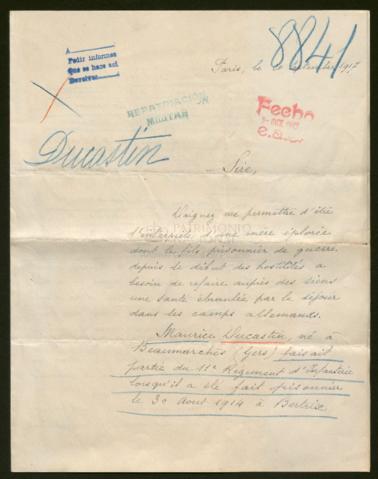 A
Pedir informes
Que se hace así
Devolver
8841
Paris, le 20 Septembre 1917
REPATRIACION
MILITAR
Fecho
OCT 1917
Ducastin
Sire,
Daignez me permettre d'être
l'interprète d'une mère éplorée
dont le fils prisonnier de guerre
depuis le début des hostilités a
besoin de refaire auprès des siens
une santé ébranlée par le séjour
dans les camps allemands.
PATRIMONIO
Maurice Ducastin, né à
Beaumarchés (Gers) faisait
partie du 11e Régiment d'Infanterie
lorsqu'il a été fait prisonnier
le 30 Aout 1914 à Bertrix.